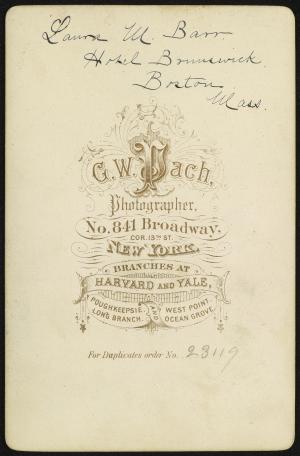 Laura M. Barr
Hotel Brunswick
Boston
Mass.
G.W. Pach,
Photographer,
No. 841 Broadway.
COR. 13TH ST.
NEW YORK.
BRANCHES AT
HARVARD AND YALE,
POUGHKEEPSIE. AND WEST POINT
LONG BRANCH. OCEAN GROVE.
For Duplicates order No. 23119